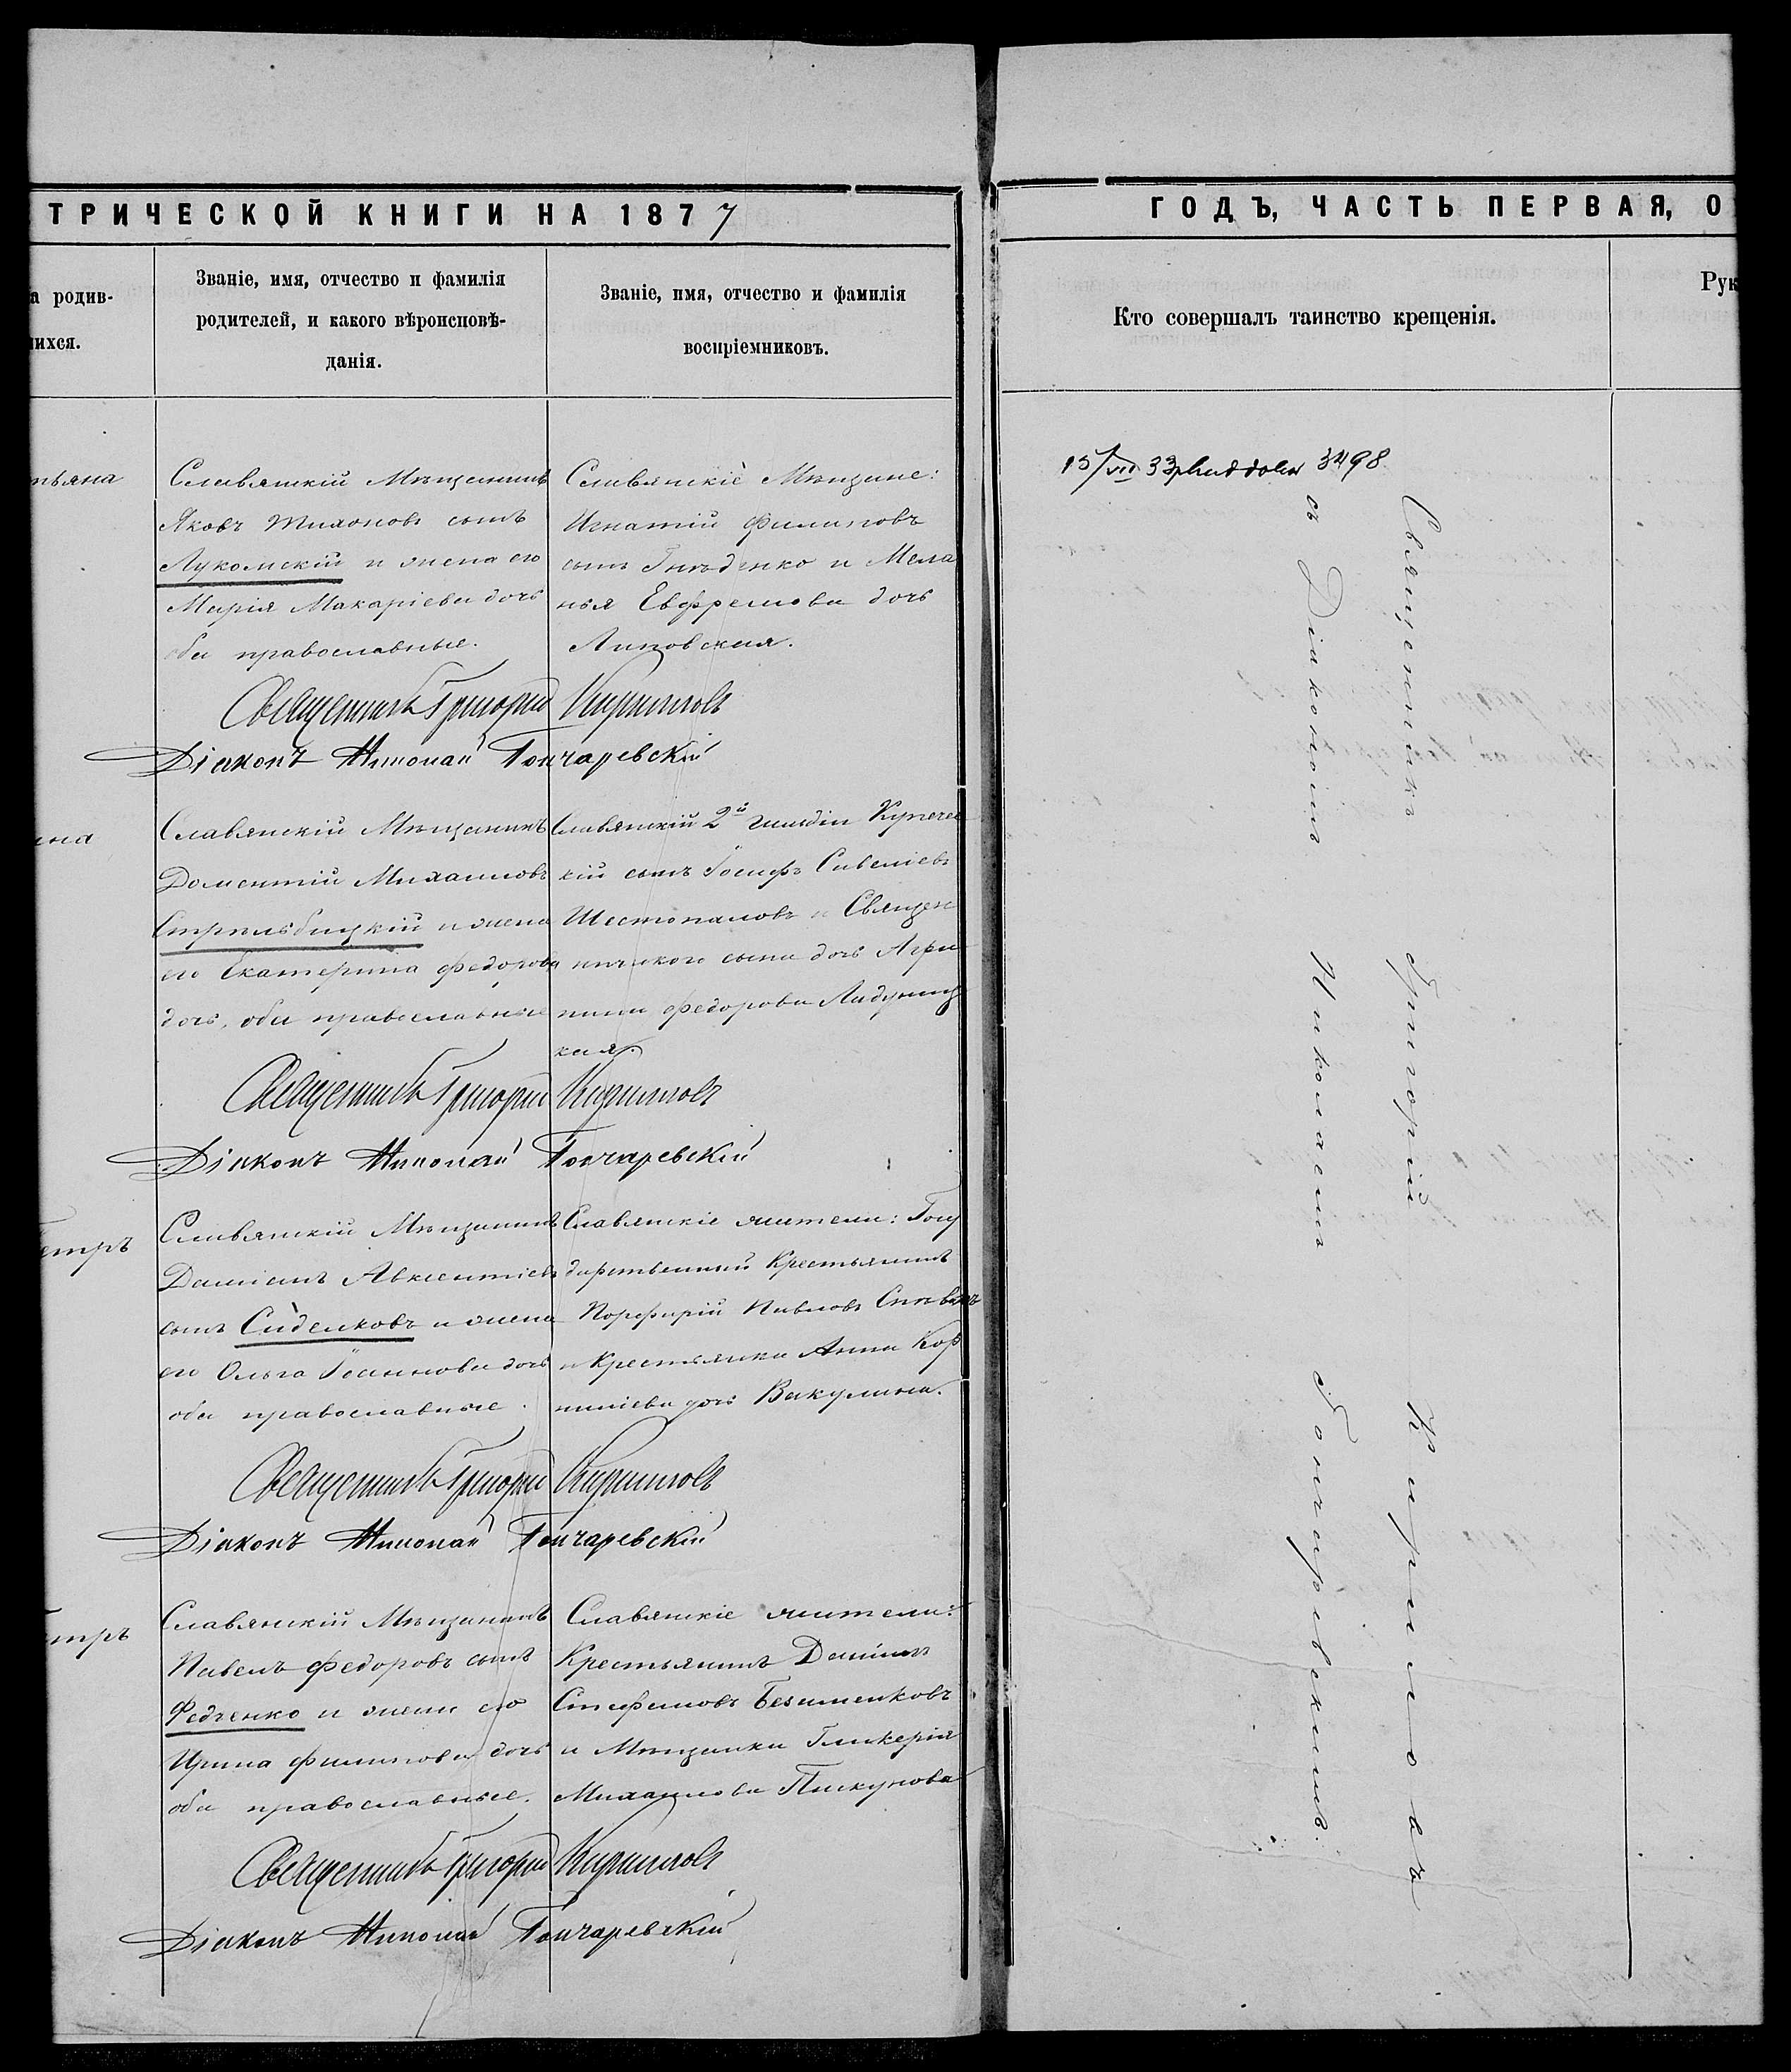 ТРИЧЕСКОЙ КНИГИ НА 1877
ГОДЪ, ЧАСТЬ ПЕРВАЯ, О
а родив-
шихся.
Званіе, имя, отчество и фамилія
родителей, и какого вѣроисповѣ-
данія.
Званіе, имя, отчество и фамилія
воспріемниковъ.
Кто совершалъ таинство крещенія.
Рук
тьяна
Славянскій Мѣщанинъ
Яковъ Тихоновъ сынъ
Лукомскій и жена его
Марія Макаріева дочь
оба православные.
Славянскіе Мѣщане:
Игнатій Филиповъ
сынъ Гнѣденко и Мела
нья Евфремова дочь
Липовская.
Священникъ Григорій Кириловъ
Діаконъ Николай Гончаревскій
ина
Славянскій Мѣщанинъ
Доментій Михаиловъ
Стрѣльбицкій и жена
его Екатерина Федорова
дочь, оба православные
Славянскій 2й гильдіи Купечес
кій сынъ Іосифъ Савеліевъ
Шестопаловъ и Священ
ническаго сына дочь Агри
пина Федорова Ладуниц
кая.
Священникъ Григорій Кириловъ
Діаконъ Николай Гончаревскій
етръ
Славянскій Мѣщанинъ
Даміанъ Авксентіевъ
сынъ Сиделковъ и жена
его Ольга Іоаннова дочь
оба православные.
Славянскіе жители: Госу
дарственный Крестьянинъ
Порфирій Павловъ Спѣвакъ
и Крестьянка Анна Кор
ниліева дочь Вакулина.
Священникъ Григорій Кириловъ
Діаконъ Николай Гончаревскій
етръ
Славянскій Мѣщанинъ
Павелъ Федоровъ сынъ
Федченко и жена его
Ирина Филипова дочь
оба православные.
Славянскіе жители:
Крестьянинъ Даніилъ
Стефановъ Безименковъ
и Мѣщанка Гликерія
Михаилова Пискунова
Священникъ Григорій Кириловъ
Діаконъ Николай Гончаревскій
15/VII 33 3498
Священникъ Григорій Кириловъ
съ Діакономъ Николаемъ Гончаревскимъ.